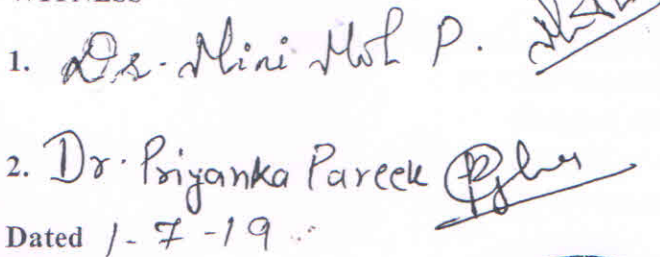 WITNESS
1. Dr. Mini Mol P.
2. Dr. Priyanka Pareek
Dated 1-7-19